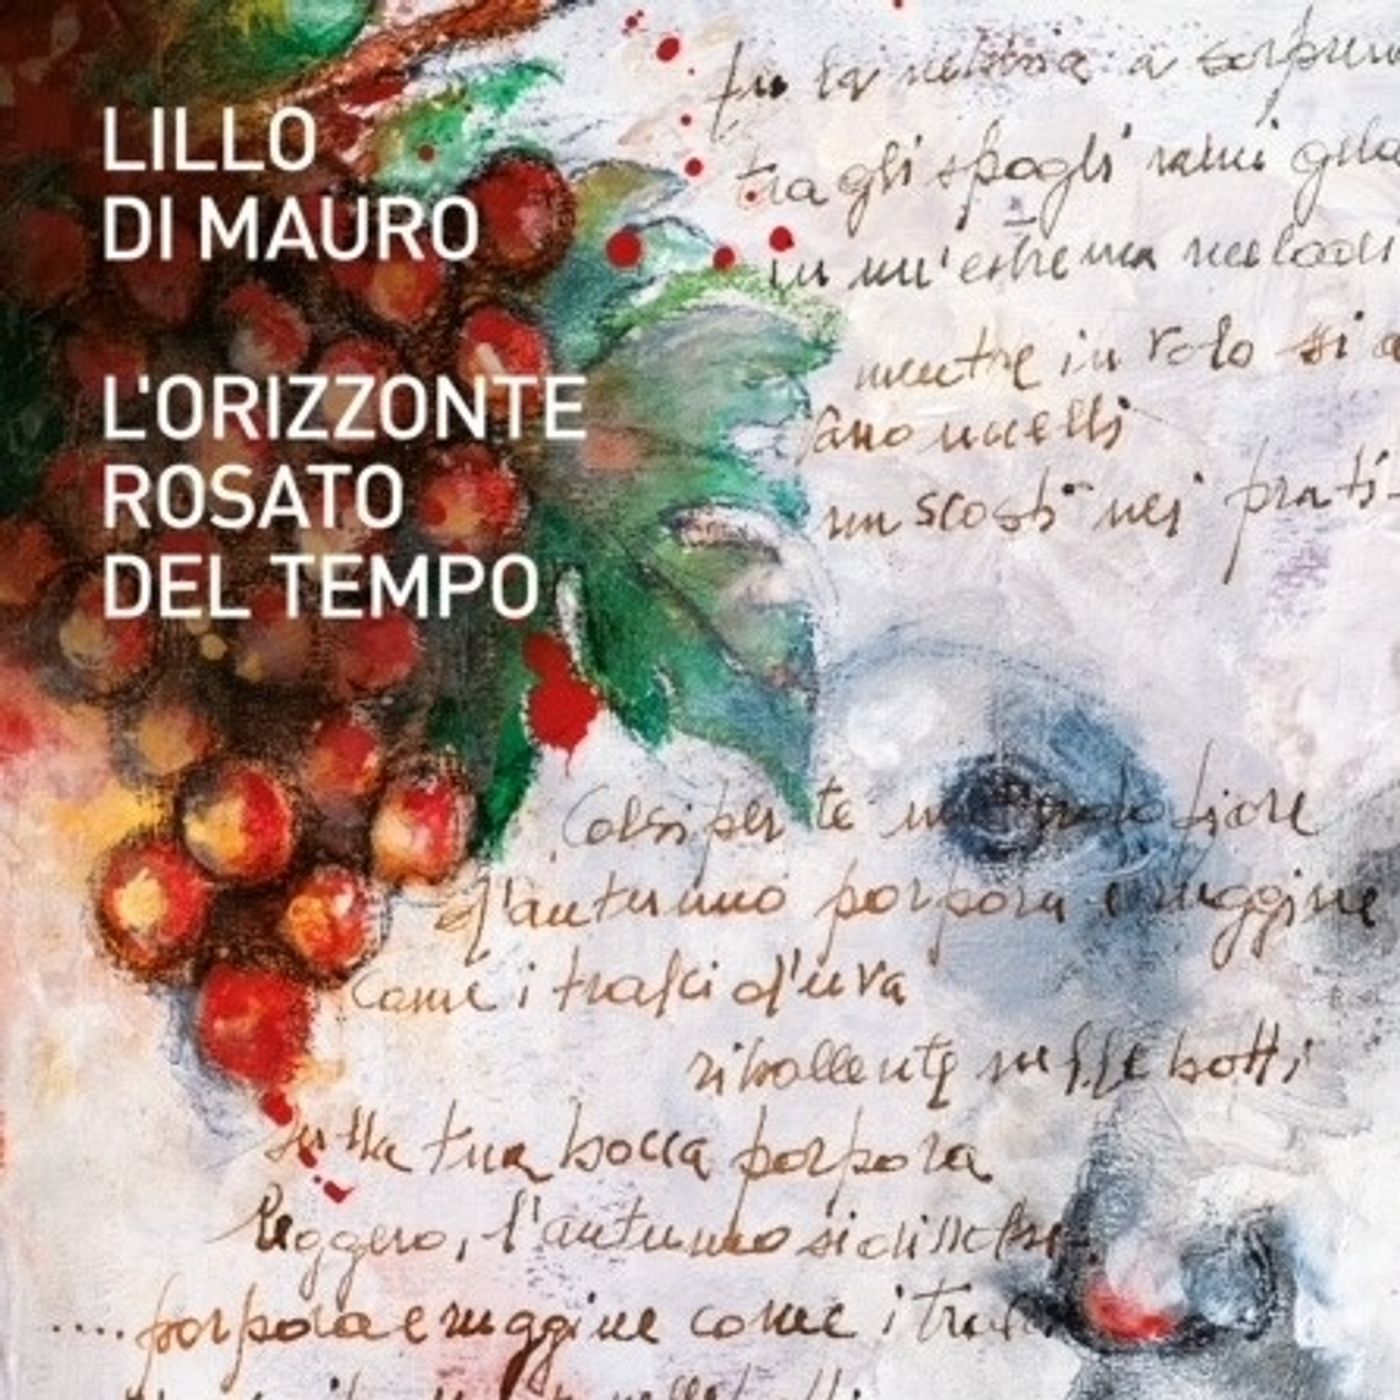 LILLO
DI MAURO
L'ORIZZONTE
ROSATO
DEL TEMPO
fu la nebbia a
tra gli spogli rami
in un'estrema
mentre in volo si
nei prati
Colsi per te un fiore
d'autunno porpora e ruggine
come i tralci d'uva
ribollente nelle botti
sulla tua bocca porpora
leggero, l'autunno si
.... porpora e ruggine come i